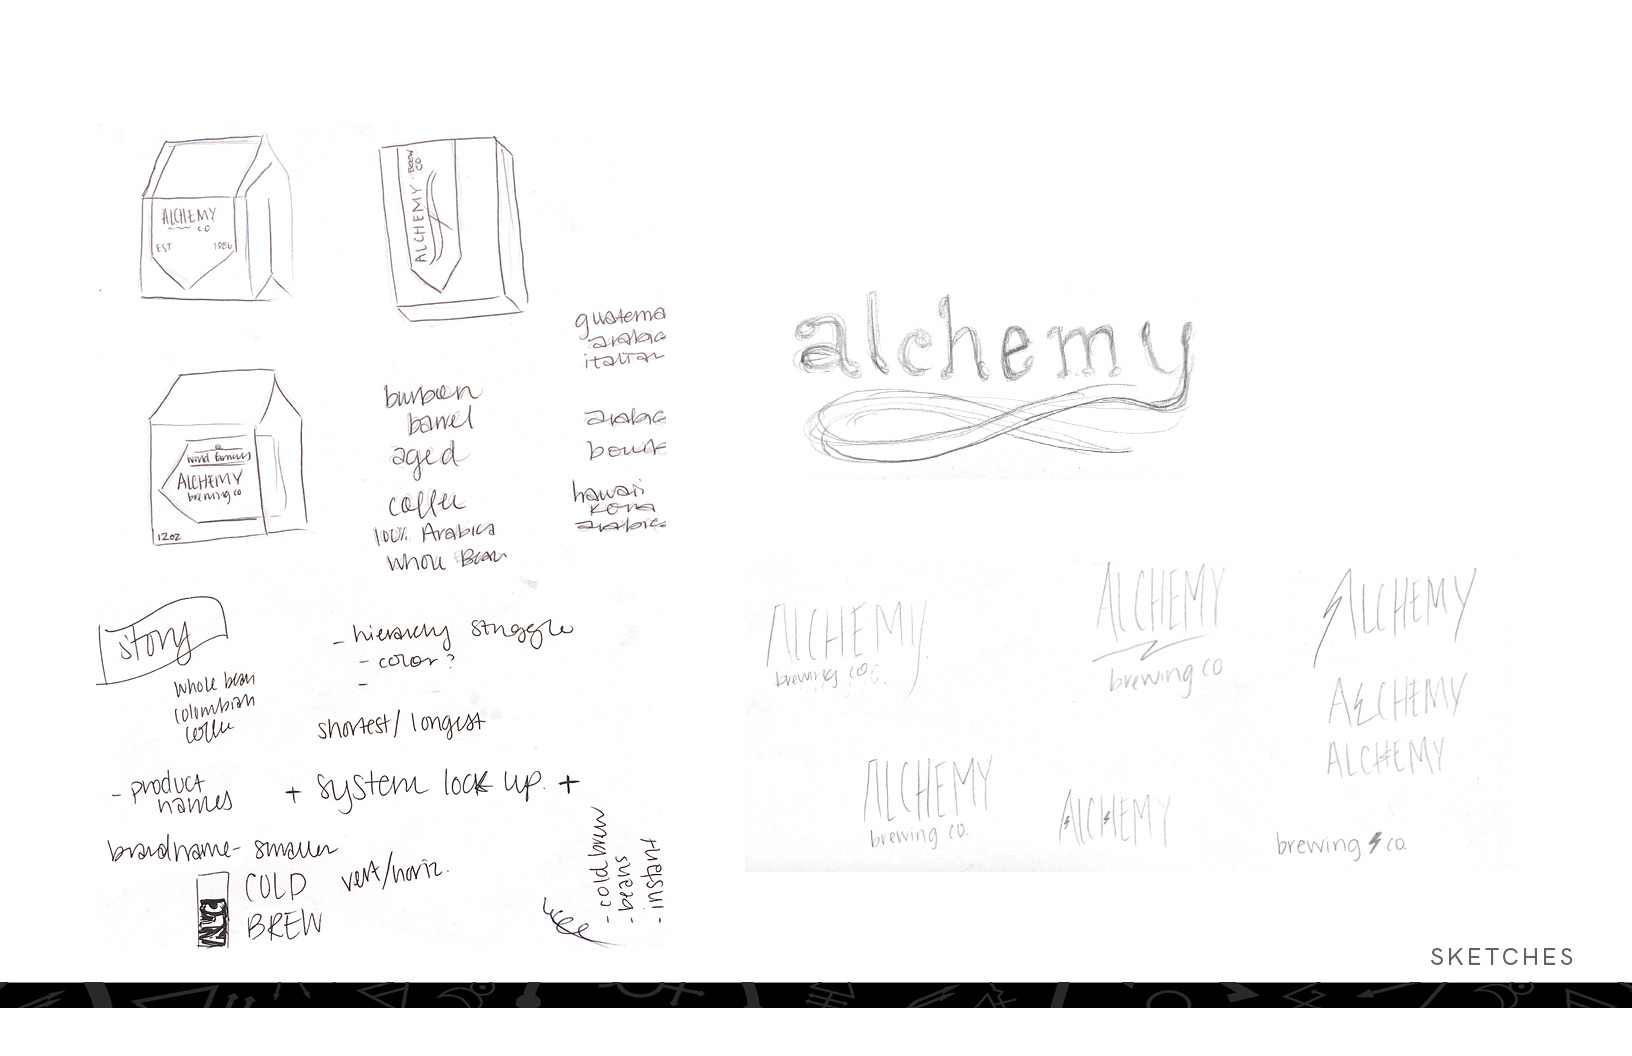 ALCHEMY
CO
EST 1986
ALCHEMY BREW
CO
world famous
ALCHEMY
brewing co
12oz
guatema
arabic
italian
burbon
barrel
aged
coffee
100% Arabica
Whole Bean
arabic
hawaii
kona
arabica
story
whole bean
colombian
coffee
- hierarchy struggle
- color?
-
shortest/longest
- product
names
+ system lock up. +
brandname - smaller
vert/horiz.
COLD
BREW
- cold brew
- beans
- instant
alchemy
ALCHEMY
brewing co.
ALCHEMY
brewing co
ALCHEMY
ALCHEMY
ALCHEMY
ALCHEMY
brewing co.
ALCHEMY
brewing co.
SKETCHES